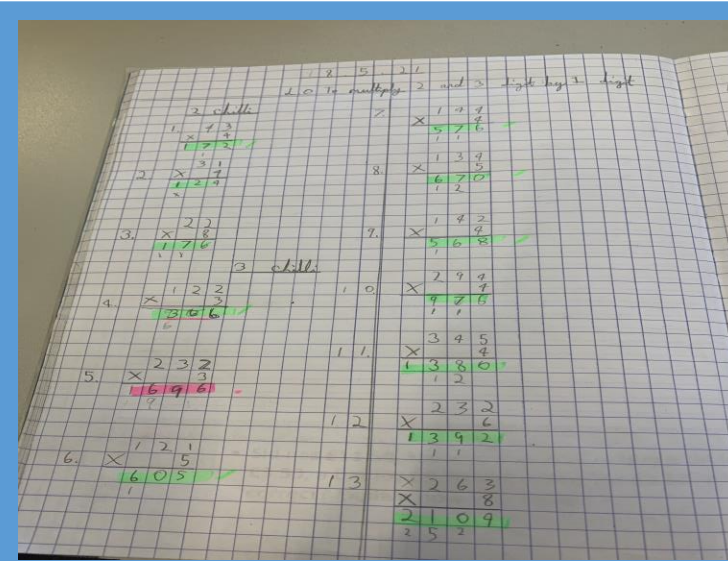 18.5.21
L.O To multiply 2 and 3 digit by 1 digit
2 chilli
1. 43
× 4
172
1
2. 31
× 4
124
×
3. 22
× 8
176
1 1
3 chilli
4. 122
× 3
6
5. 232
× 3
1696
9
6. 121
× 5
605
1
7. 144
× 4
576
1 1
8. 134
× 5
670
1 2
9. 142
× 4
568
1
10. 244
× 4
976
1 1
11. 345
× 4
1380
1 2
12 232
× 6
1392
1 1
13 × 263
× 8
2104
2 5 2